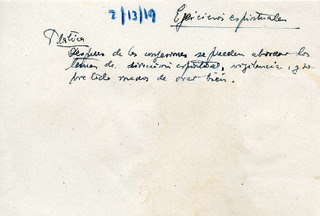 2/13/19
Ejercicios espirituales
Platica
Despues de las confesiones se pueden abordar los
temas de direccion espiritual, vigilancia, y
pre todo modos de orar bien.